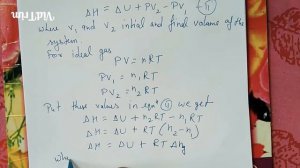 VidTrim
ΔH = ΔU + PV₂ - PV₁ - ⑪
where V₁ and V₂ intial and final volume of the
system.
For ideal gas
PV = nRT
PV₁ = n₁RT
PV₂ = n₂RT
Put these values in eqⁿ ⑪ we get
ΔH = ΔU + n₂RT - n₁RT
ΔH = ΔU + RT (n₂-n₁)
ΔH = ΔU + RT Δng
whe